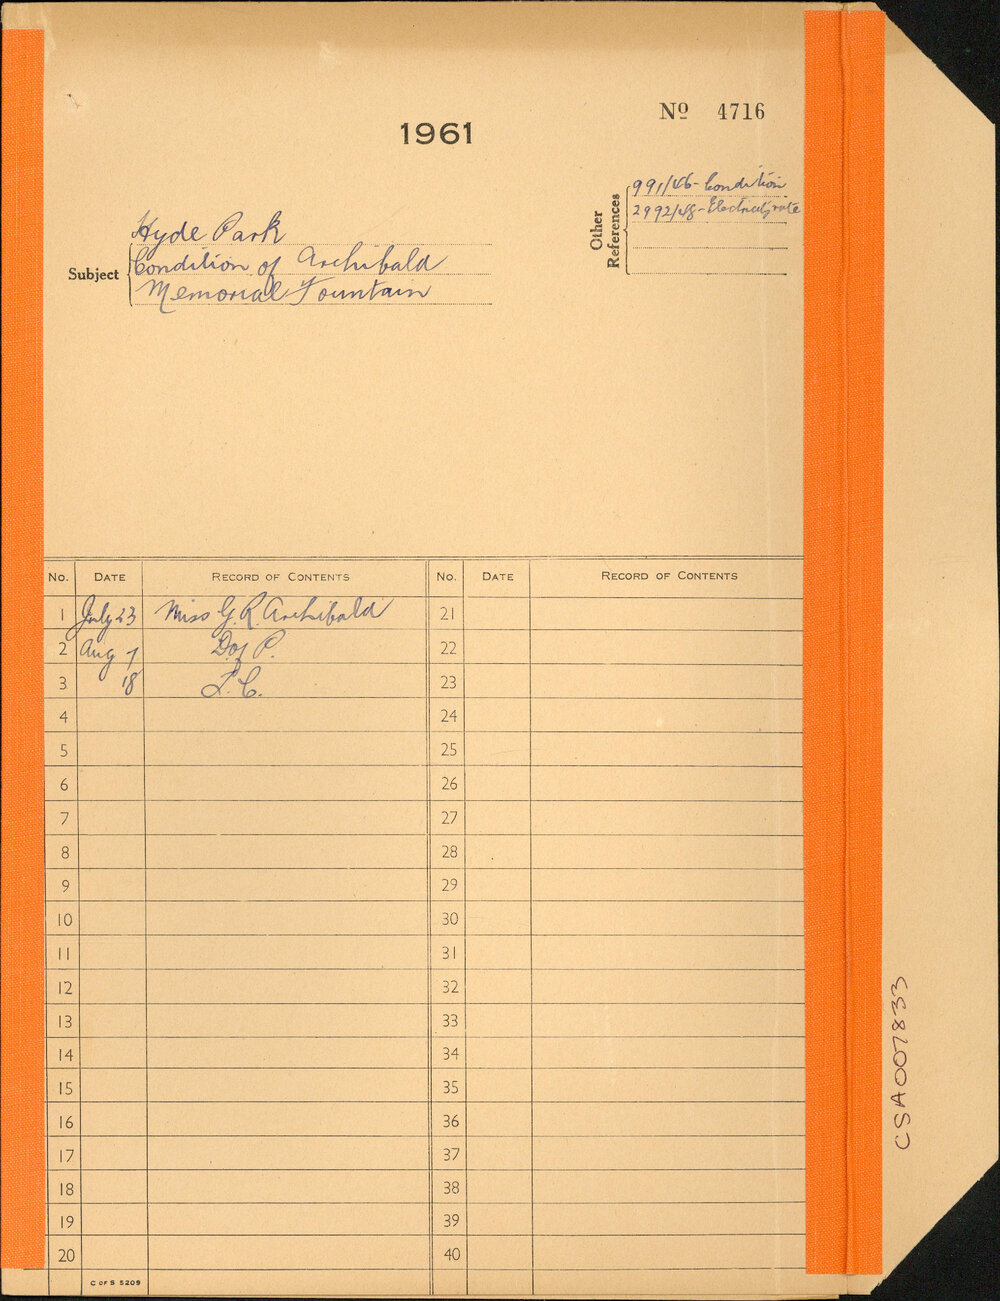 1961
Nº 4716
Other References
991/46 - Condition
2992/48 - Electrolysis
Subject
Hyde Park
Condition of Archibald
Memorial Fountain
No. DATE RECORD OF CONTENTS No. DATE RECORD OF CONTENTS
1 July 23 Miss G. R. Archibald 21
2 Aug 7 D of P. 22
3 18 T.C. 23
4 24
5 25
6 26
7 27
8 28
9 29
10 30
11 31
12 32
13 33
14 34
15 35
16 36
17 37
18 38
19 39
20 40
C OF S 5209
CSA007833